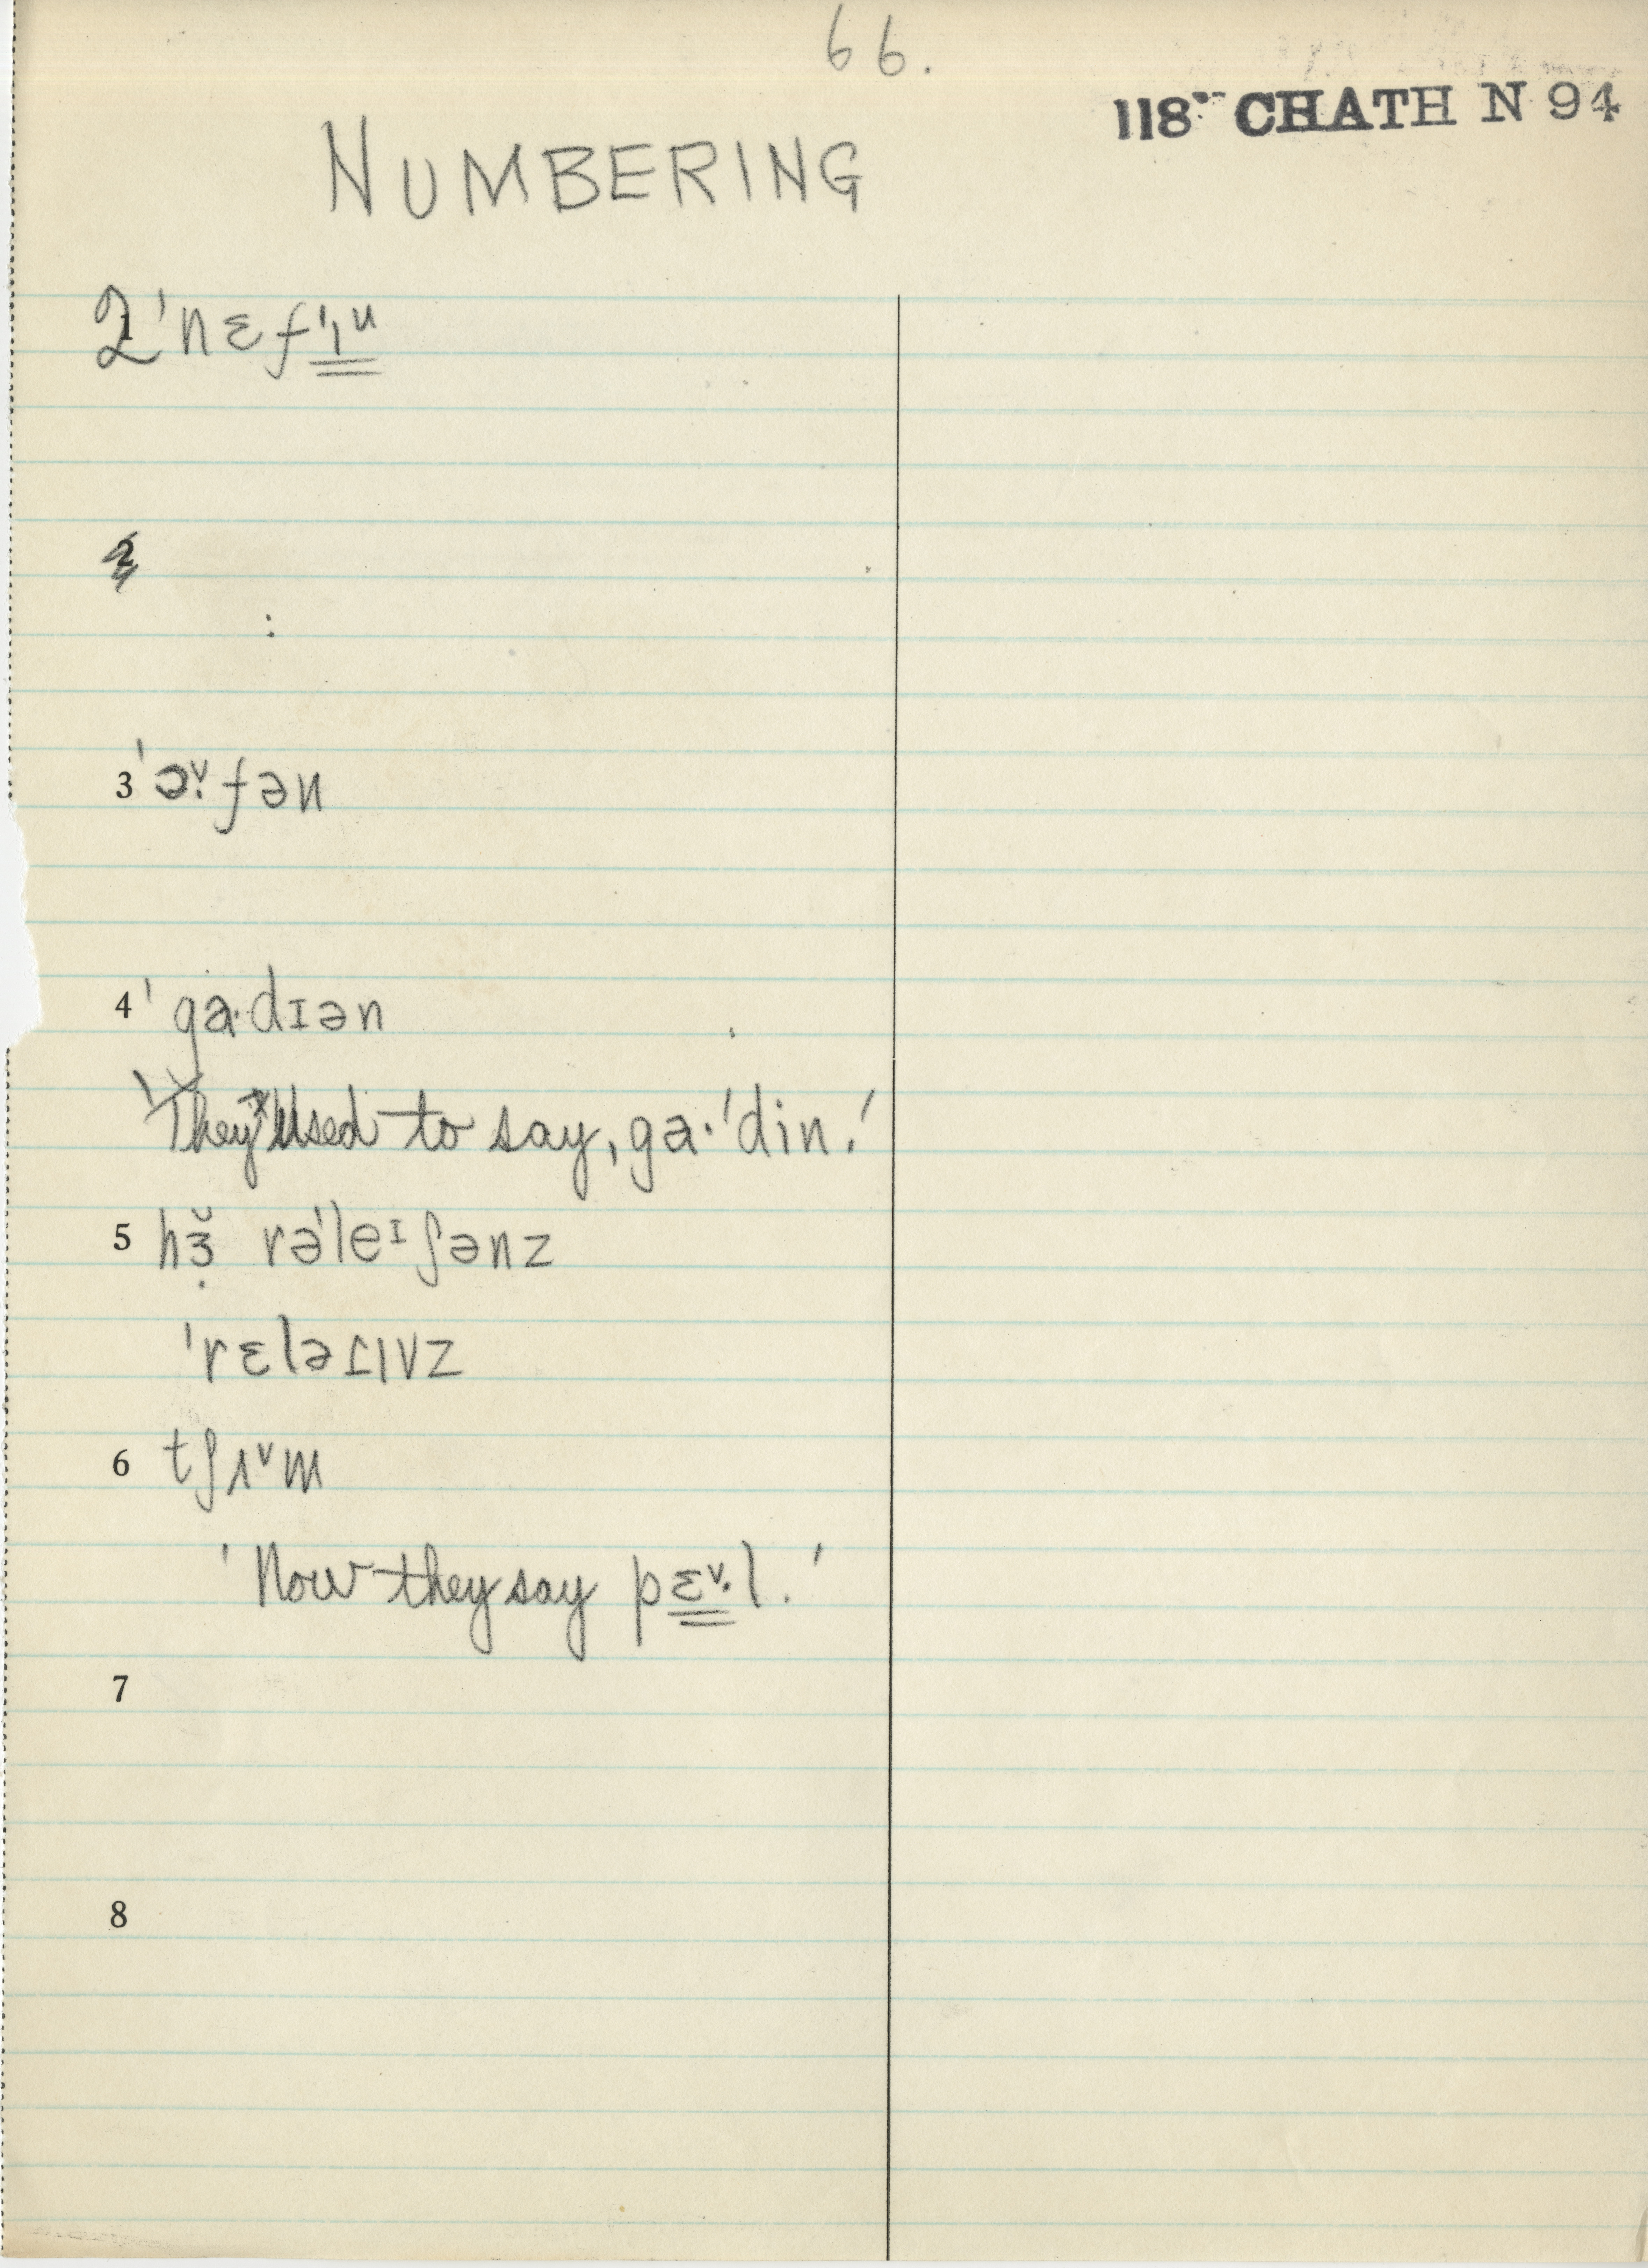 66.
118" CHATH N 94
NUMBERING
2 ˈnɛfɪᶸ
2
3 ˈɔᵛ·fən
4 ˈgɑ·dɪən
'They used to say, gɑ·ˈdin.'
5 hɜ̣̆ rəˈleᶦʃənz
ˈrɛləɾɪvz
6 tʃʌᵛm
'Now they say pɛᵛ·l.'
7
8